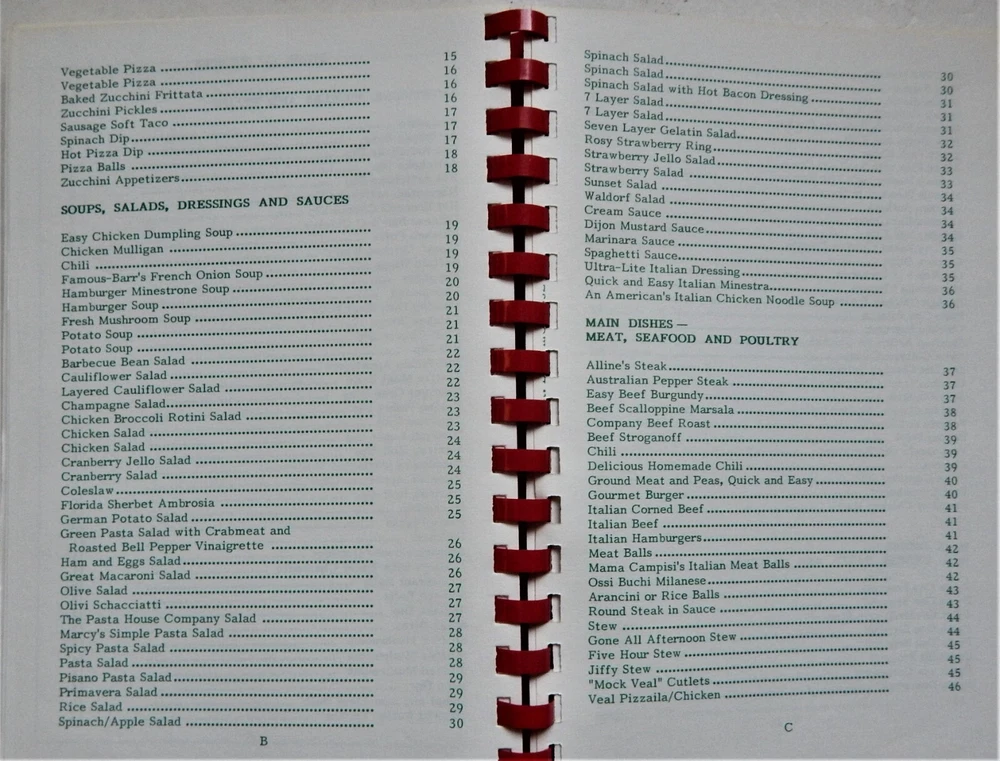 Vegetable Pizza 15
Vegetable Pizza 16
Baked Zucchini Frittata 16
Zucchini Pickles 16
Sausage Soft Taco 17
Spinach Dip 17
Hot Pizza Dip 17
Pizza Balls 18
Zucchini Appetizers 18
SOUPS, SALADS, DRESSINGS AND SAUCES
Easy Chicken Dumpling Soup 19
Chicken Mulligan 19
Chili 19
Famous-Barr's French Onion Soup 19
Hamburger Minestrone Soup 20
Hamburger Soup 20
Fresh Mushroom Soup 21
Potato Soup 21
Potato Soup 21
Barbecue Bean Salad 22
Cauliflower Salad 22
Layered Cauliflower Salad 22
Champagne Salad 23
Chicken Broccoli Rotini Salad 23
Chicken Salad 23
Chicken Salad 24
Cranberry Jello Salad 24
Cranberry Salad 24
Coleslaw 25
Florida Sherbet Ambrosia 25
German Potato Salad 25
Green Pasta Salad with Crabmeat and
Roasted Bell Pepper Vinaigrette 26
Ham and Eggs Salad 26
Great Macaroni Salad 26
Olive Salad 27
Olivi Schacciatti 27
The Pasta House Company Salad 27
Marcy's Simple Pasta Salad 28
Spicy Pasta Salad 28
Pasta Salad 28
Pisano Pasta Salad 29
Primavera Salad 29
Rice Salad 29
Spinach/Apple Salad 30
B
Spinach Salad 30
Spinach Salad 30
Spinach Salad with Hot Bacon Dressing 31
7 Layer Salad 31
7 Layer Salad 31
Seven Layer Gelatin Salad 32
Rosy Strawberry Ring 32
Strawberry Jello Salad 33
Strawberry Salad 33
Sunset Salad 34
Waldorf Salad 34
Cream Sauce 34
Dijon Mustard Sauce 34
Marinara Sauce 35
Spaghetti Sauce 35
Ultra-Lite Italian Dressing 35
Quick and Easy Italian Minestra 36
An American's Italian Chicken Noodle Soup 36
MAIN DISHES —
MEAT, SEAFOOD AND POULTRY
Alline's Steak 37
Australian Pepper Steak 37
Easy Beef Burgundy 37
Beef Scalloppine Marsala 38
Company Beef Roast 38
Beef Stroganoff 39
Chili 39
Delicious Homemade Chili 39
Ground Meat and Peas, Quick and Easy 40
Gourmet Burger 40
Italian Corned Beef 41
Italian Beef 41
Italian Hamburgers 41
Meat Balls 42
Mama Campisi's Italian Meat Balls 42
Ossi Buchi Milanese 42
Arancini or Rice Balls 43
Round Steak in Sauce 43
Stew 44
Gone All Afternoon Stew 44
Five Hour Stew 45
Jiffy Stew 45
"Mock Veal" Cutlets 45
Veal Pizzaila/Chicken 46
C